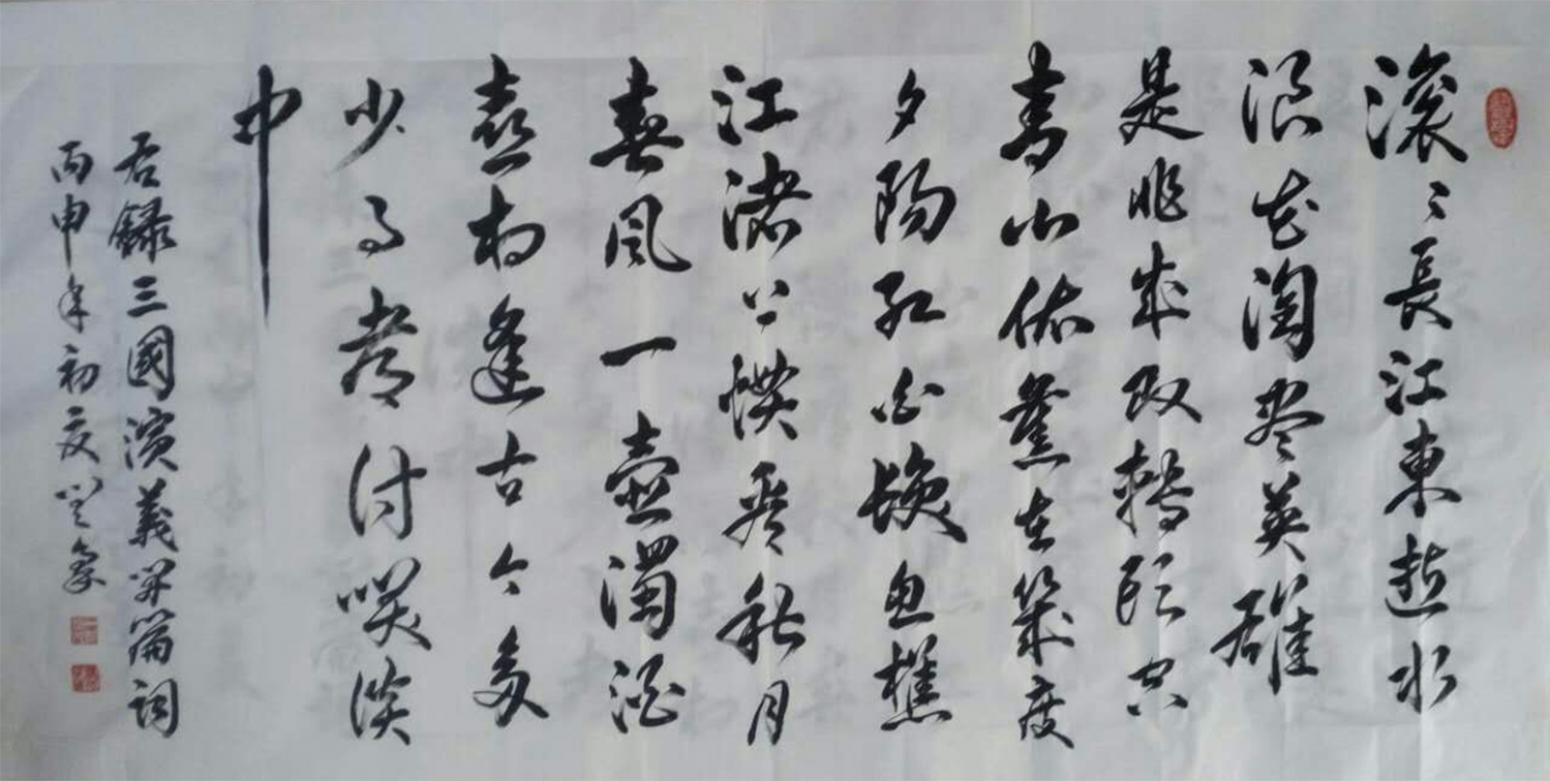 滚〻長江東逝水
浪花淘盡英雄
是非成敗轉頭空
青山依舊在幾度
夕陽紅白髮漁樵
江渚上慣看秋月
春風一壺濁酒
喜相逢古今多
少事都付笑談
中
右錄三國演義開篇詞
丙申年初夏